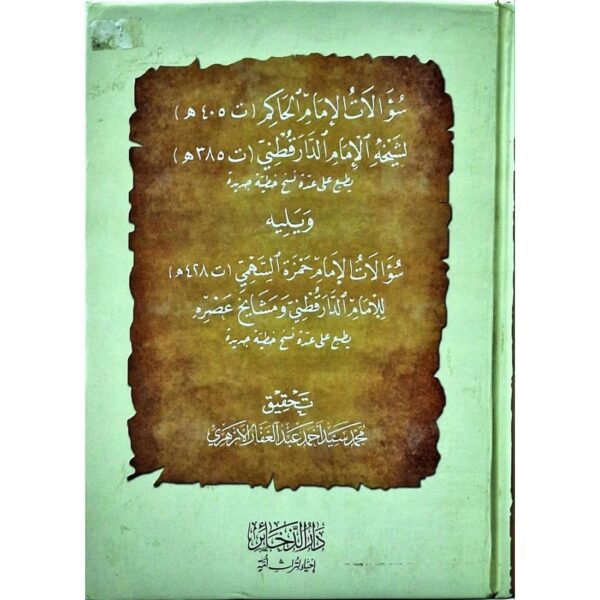 سُؤَالَاتُ الإِمَامِ الحَاكِمِ (ت ٤٠٥ هـ)
لِشَيْخِهِ الإِمَامِ الدَّارَقُطْنِيِّ (ت ٣٨٥ هـ)
يطبع على عدة نسخ خطية جديدة
وَيَلِيهِ
سُؤَالَاتُ الإِمَامِ حَمْزَةَ السَّهْمِيِّ (ت ٤٢٨ هـ)
لِلإِمَامِ الدَّارَقُطْنِيِّ وَمَشَايِخِ عَصْرِهِ
يطبع على عدة نسخ خطية جديدة
تَحْقِيق
مُحَمَّد سَيِّد أَحْمَد عَبْد الغَفَّار الأَزْهَرِيّ
دَارُ الذَّخَائِرِ
إحياء لتراث أمة